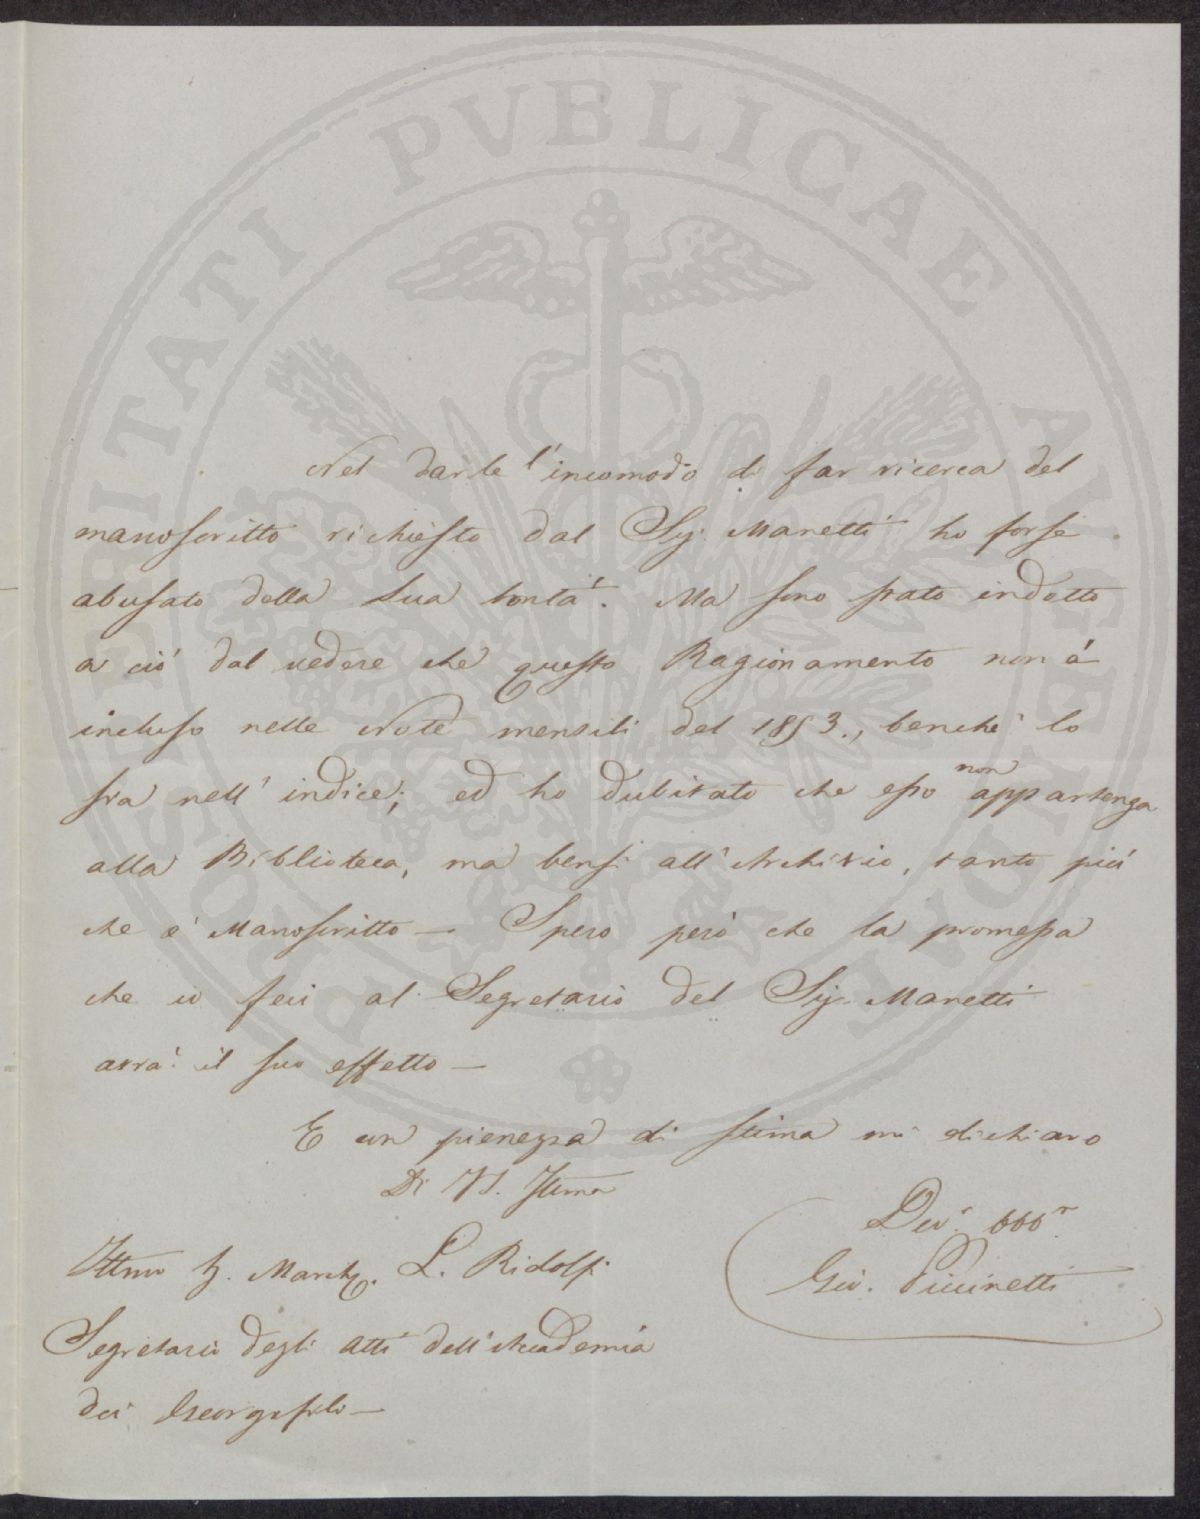 PROSPERITATI PVBLICAE AVGENDAE
Nel darle l'incomodo di far ricerca del
manoscritto richiesto dal Sig. Manetti ho forse
abusato della Sua bontà. Ma sono stato indotto
a ciò dal vedere che questo Ragionamento non è
incluso nelle Note mensili del 1853., benchè lo
sia nell'indice; ed ho dubitato che esso non appartenga
alla Biblioteca, ma bensì all'Archivio, tanto più
che è Manoscritto —  Spero però che la promessa
che io feci al Segretario del Sig. Manetti
avrà il suo effetto —
E con pienezza di stima mi dichiaro
Di VS. Illma
Dev. Obb.
Gio. Piccinetti
Illmo Marche. L. Ridolfi
Segretario degli Atti dell'Accademia
dei Georgofili —